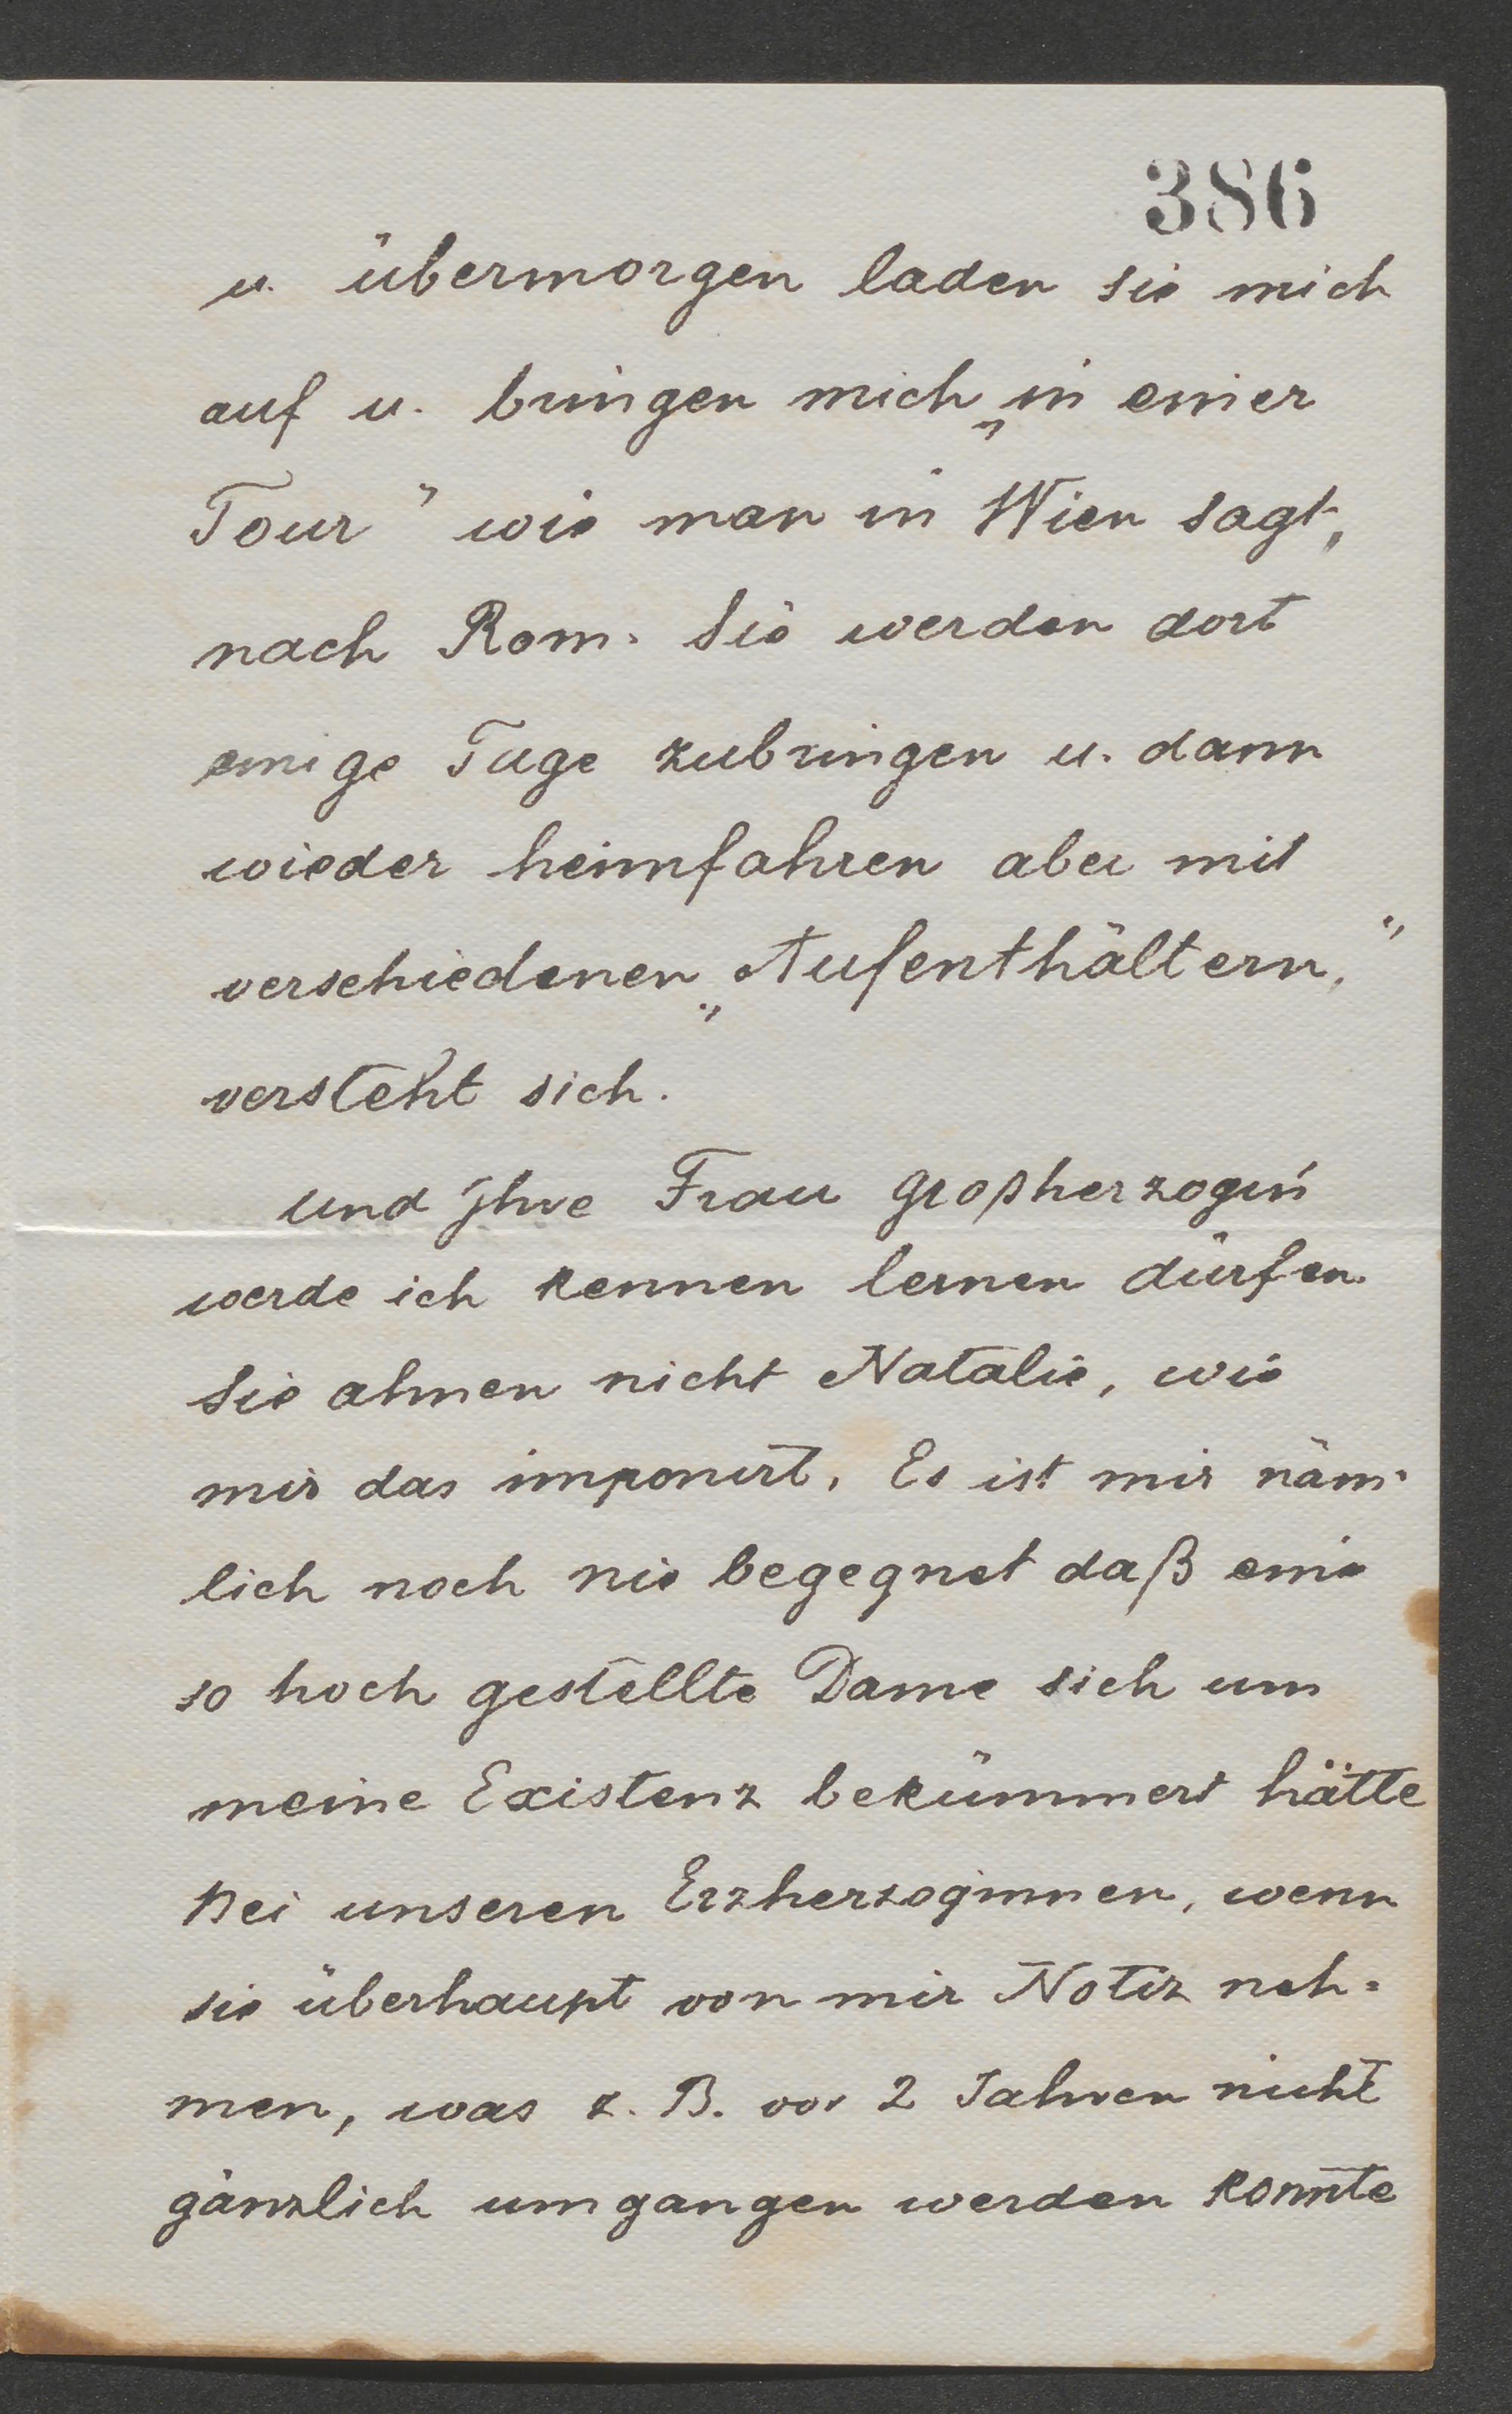 386
u. übermorgen laden sie mich
auf u. bringen mich „in einer
Tour" wie man in Wien sagt,
nach Rom. Sie werden dort
einige Tage zubringen u. dann
wieder heimfahren aber mit
verschiedenen „Aufenthältern,"
versteht sich.
Und Ihre Frau Großherzogin
werde ich kennen lernen dürfen.
Sie ahnen nicht Natalie, wie
mir das imponirt. Es ist mir näm-
lich noch nie begegnet daß eine
so hoch gestellte Dame sich um
meine Existenz bekümmert hätte
Bei unseren Erzherzoginnen, wenn
sie überhaupt von mir Notiz neh=
men, was z. B. vor 2 Jahren nicht
gänzlich umgangen werden konnte